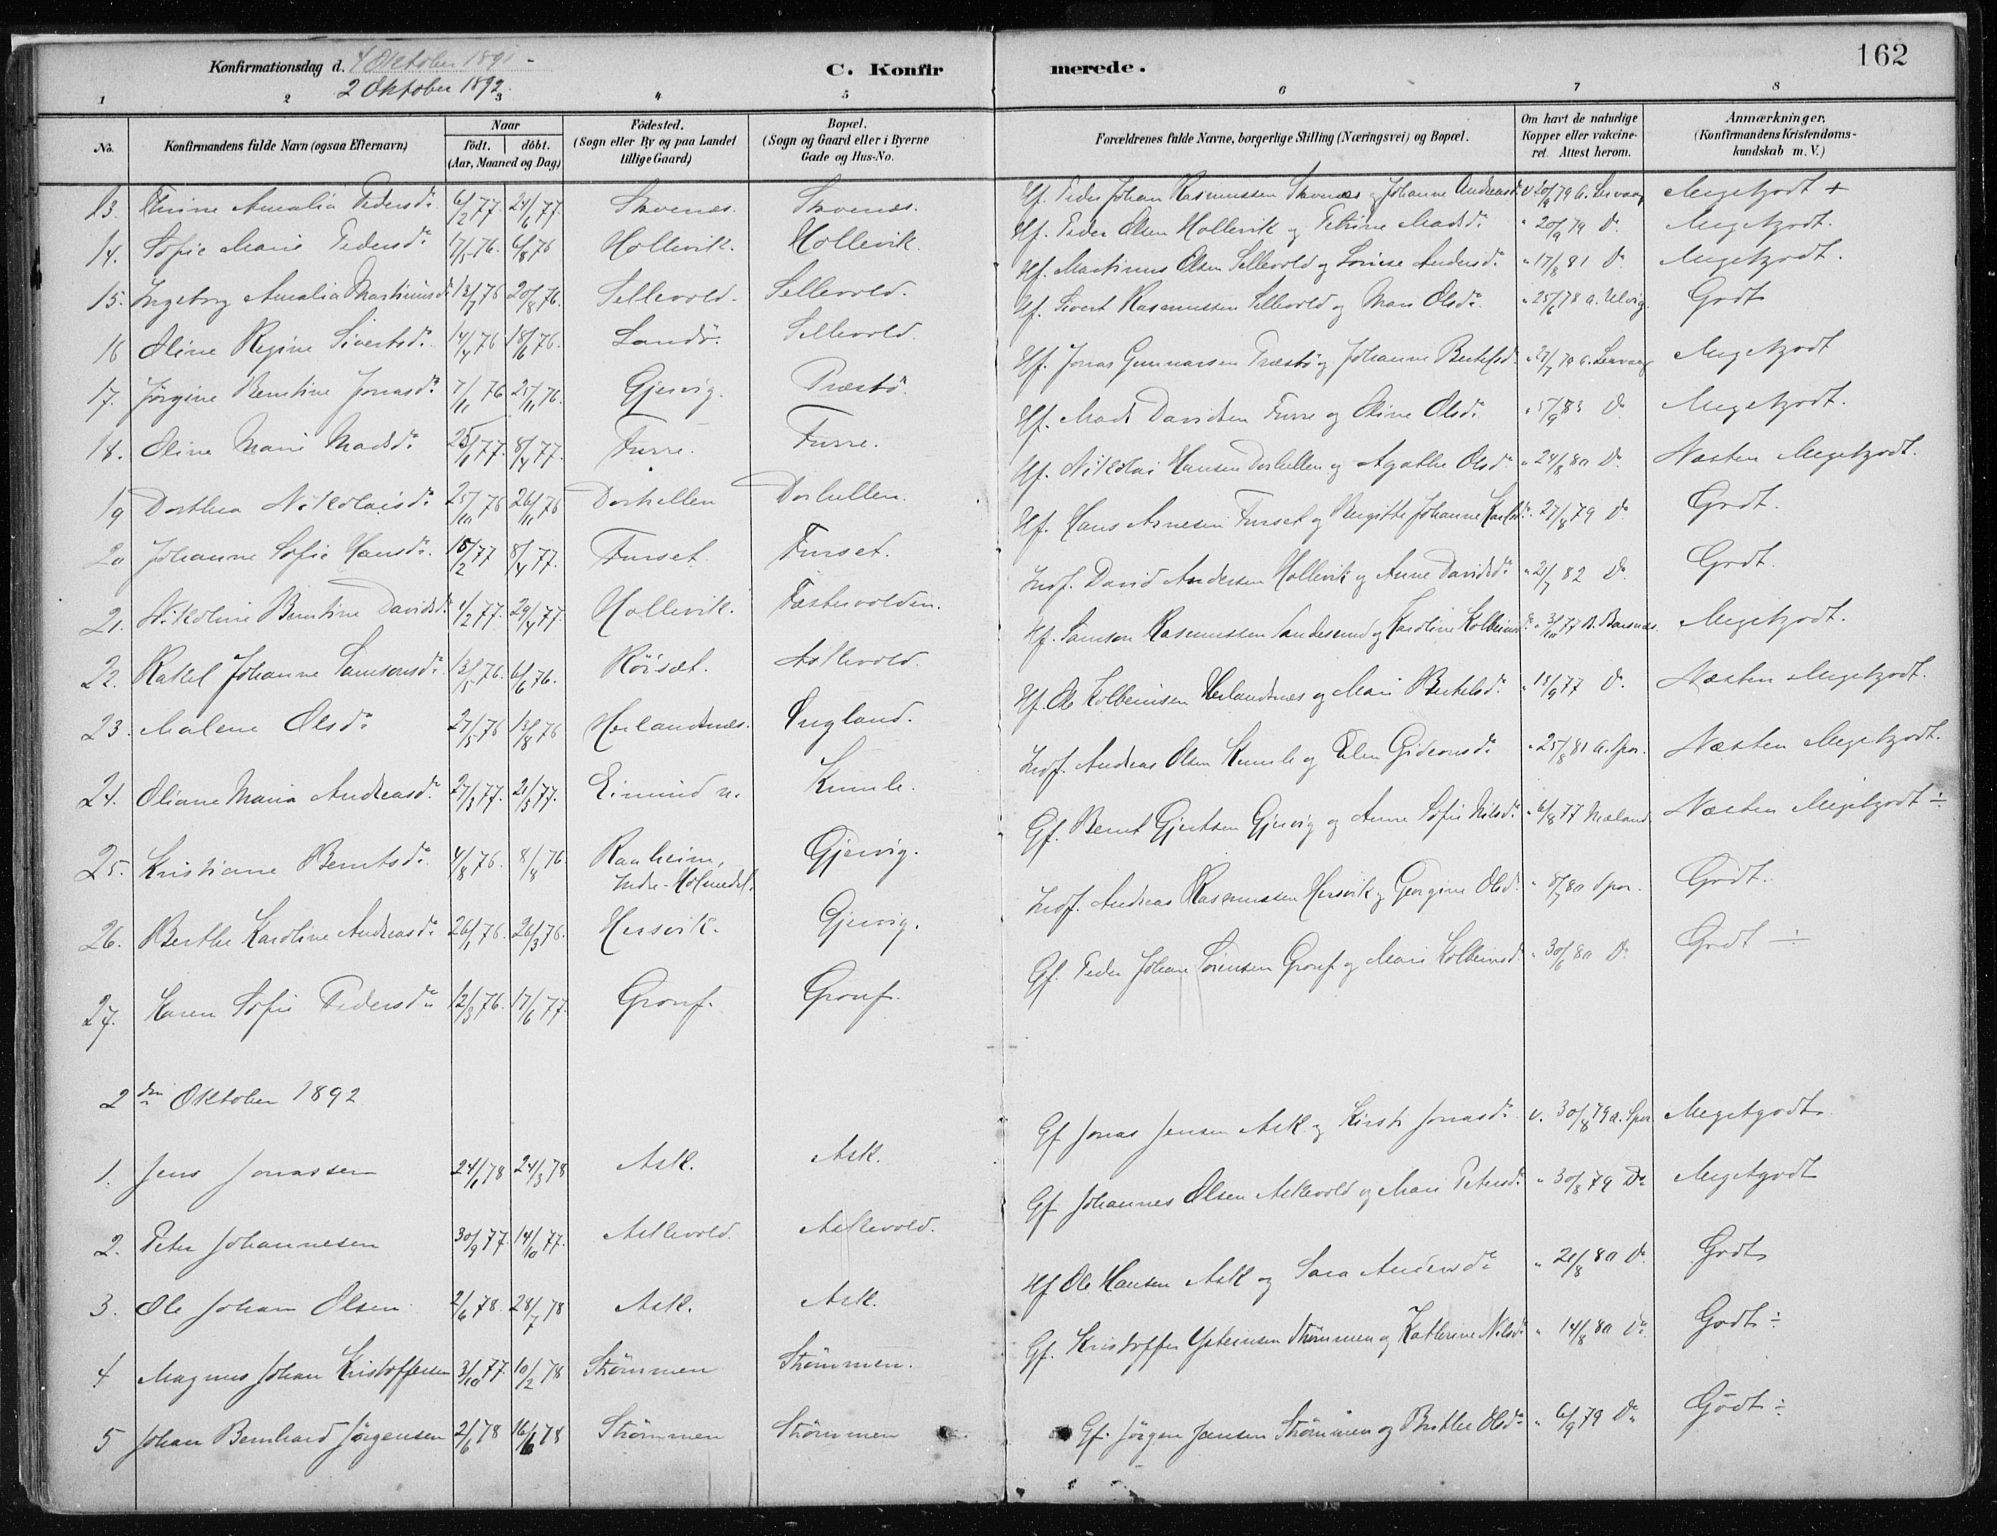 162
Konfirmationsdag d. 4 Oktober 1891 -
2 Oktober 1892.
C. Konfirmerede.
1 2 3 4 5 6 7 8
No. Konfirmandens fulde Navn (ogsaa Efternavn) Naar født. døbt. (Aar, Maaned og Dag) Fødested. (Sogn eller By og paa Landet tillige Gaard) Bopæl. (Sogn og Gaard eller i Byerne Gade og Hus-No. Forældrenes fulde Navne, borgerlige Stilling (Næringsvei) og Bopæl. Om havt de naturlige Kopper eller vakcineret. Attest herom. Anmærkninger, (Konfirmandens Kristendomskundskab m. V.)
13. Amalia Pedersdr. 6/2 77. 24/6 77. Skvenæs. Skvenæs. Hf. Peder Johan Rasmussen Skvenæs og Johanne Andreasdr. Megetgodt +
14. Sofie Marie Pedersdr. 17/5 76. 6/8 76 Hollevik. Hollevik. Hf. Peder Olsen Hollevik og Petrine Madsdr. " 20/9 79 Do. Megetgodt.
15. Ingeborg Amalia Martinusdr. 13/7 76 20/8 76. Sellevold. Sellevold. Hf. Martinus Olsen Sellevold og Lovise Andersdr. " 17/8 81 Do. Megetgodt.
16 Oline Regine Sivertsdr. 14/4 76 18/6 76. Sandø. Sellevold. Hf. Sivert Rasmussen Sellevold og Mari Olsdr. " 25/6 78 a. Ulvig. Godt
17. Jørgine Berntine Jonasdr. 7/11 76 25/11 76. Gjervig. Præstø. Hf. Jonas Gunnarsen Præstø og Johanne Bertelsdr. Megetgodt
18. Oline Marie Madsdr. 25/1 77. 8/4 77. Furre. Furre. Hf. Mads Davidsen Furre og Oline Olsdr. " 5/9 83 Do. Megetgodt.
19 Dorthea Nikolaisdr. 25/10 76 26/11 76 Dorhellen Dorhellen. Hf. Nikolai Hansen Dorhellen og Agathe Olsdr. " 24/8 80 Do. Næsten Megetgodt.
20 Johanne Sofie Hansdr. 15/2 77 8/4 77. Furset. Furset. Hf. Hans Arnesen Furset og Birgitte Johanne Karlsdr. " 27/8 79 Do. Godt.
21. Nikoline Berntine Davidsdr. 1/2 77. 29/4 77. Hollevik. Festervolden. Indf. David Andersen Hollevik og Anne Davidsdr. " 21/7 82 Do. Godt.
22. Rakel Johanne Samsonsdr. 13/5 76. 6/6 76. Röisæt. Askevold. Hf. Samson Rasmussen Sandesund og Karoline Kolbeinsdr. " 3/10 77 Megetgodt.
23. Malene Olsdr. 27/5 76 13/8 76 Herlandsnæs. Sugland. Hf. Ole Kolbeinsen Herlandsnæs og Mari Bertelsdr. " 18/9 77 Do. Næsten Megetgodt.
24. Oliane Maria Andreasdr. 27/3 77. 21/5 77. Eimind n. Kumle. Indf. Andreas Olsen Kumle og Elen Gideonsdr. " 25/8 81 a. Spor. Næsten Megetgodt.
25. Kristiane Berntsdr. 4/8 76. 8/8 76 Raaheim, Indre-Holmedal. Gjervig. Gf. Bernt Gjertsen Gjervig og Anne Sofie Nilsdr. " 6/8 77 Mæland Næsten Megetgodt ÷
26. Berthe Karoline Andreasdr. 26/1 76. 26/3 76. Hersvik. Gjervig. Indf. Andreas Rasmussen Hersvik og Georgine Olsdr. " 8/7 80 Spor. Godt.
27. Karen Sofie Pedersdr. 12/3 76. 17/6 77. Gronf. Gronf. Gf. Peder Johan Sørensen Gronf og Mari Kolbeinsdr. " 30/6 80 Do. Godt ÷
2den Oktober 1892
1. Jens Jonassen 24/1 78 24/3 78 Ask. Ask. Gf Jonas Jensen Ask og Kirsti Jonasdr. v. 30/8 79 a. Spor Megetgodt
2. Peter Johannesen 30/9 77. 14/10 77. Askevold. Askevold. Gf Johannes Olsen Askevold og Mari Petersdr. " 30/8 79 Do Megetgodt
3. Ole Johan Olsen. 2/6 78. 28/7 78 Ask. Ask. Hf Ole Hansen Ask og Sara Andersdr. " 21/8 80 Do. Godt
4 Magnus Johan Kristoffersen 3/10 77. 10/2 78 Strømmen Strømmen. Gf. Kristoffer Ysteinsen Strømmen og Katherine Nilsdr. " 14/8 80 Do. Godt ÷
5 Johan Bernhard Jørgensen 2/6 78 16/6 78 Strømmen Strømmen Gf. Jørgen Jansen Strømmen og Brithe Olsdr. " 6/9 79 Do Godt ÷